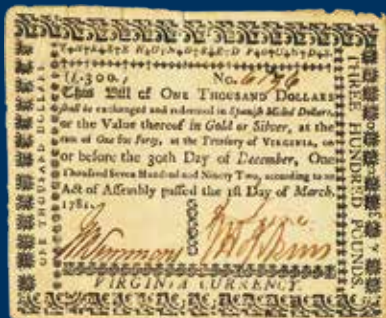 THREE HUNDRED POUNDS.
(£.300.) No. 6196
This Bill of ONE THOUSAND DOLLARS
shall be exchanged and redeemed in Spanish Milled Dollars,
or the Value thereof in Gold or Silver, at the
rate of One for Forty, at the Treasury of VIRGINIA, on
or before the 30th Day of December, One
Thousand Seven Hundred and Ninety Two, according to an
Act of Assembly passed the 1st Day of March,
1781.
VIRGINIA CURRENCY.
ONE THOUSAND DOLLARS
THREE HUNDRED POUNDS.